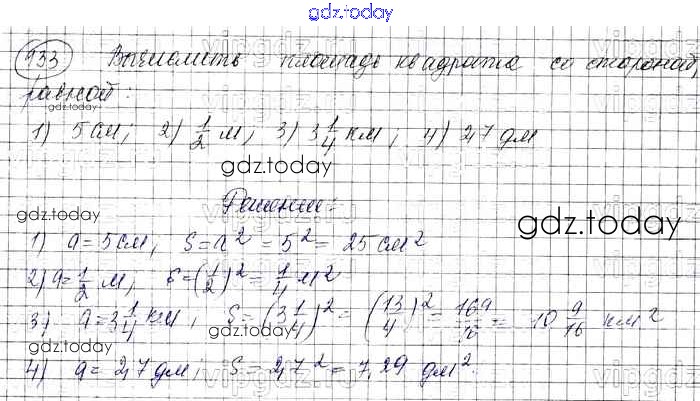 gdz.today
933 Вычислить площадь квадрата со стороной
равной:
gdz.today
1) 5 см; 2) 1/2 м; 3) 3 1/4 км; 4) 2,7 дм
gdz.today
Решение:
gdz.today
gdz.today
1) a = 5 см, S = a² = 5² = 25 см²
2) a = 1/2 м, S = (1/2)² = 1/4 м²
3) a = 3 1/4 км, S = (3 1/4)² = (13/4)² = 169/16 = 10 9/16 км²
gdz.today
gdz.today
4) a = 2,7 дм; S = 2,7² = 7,29 дм².
vipgdz.ru